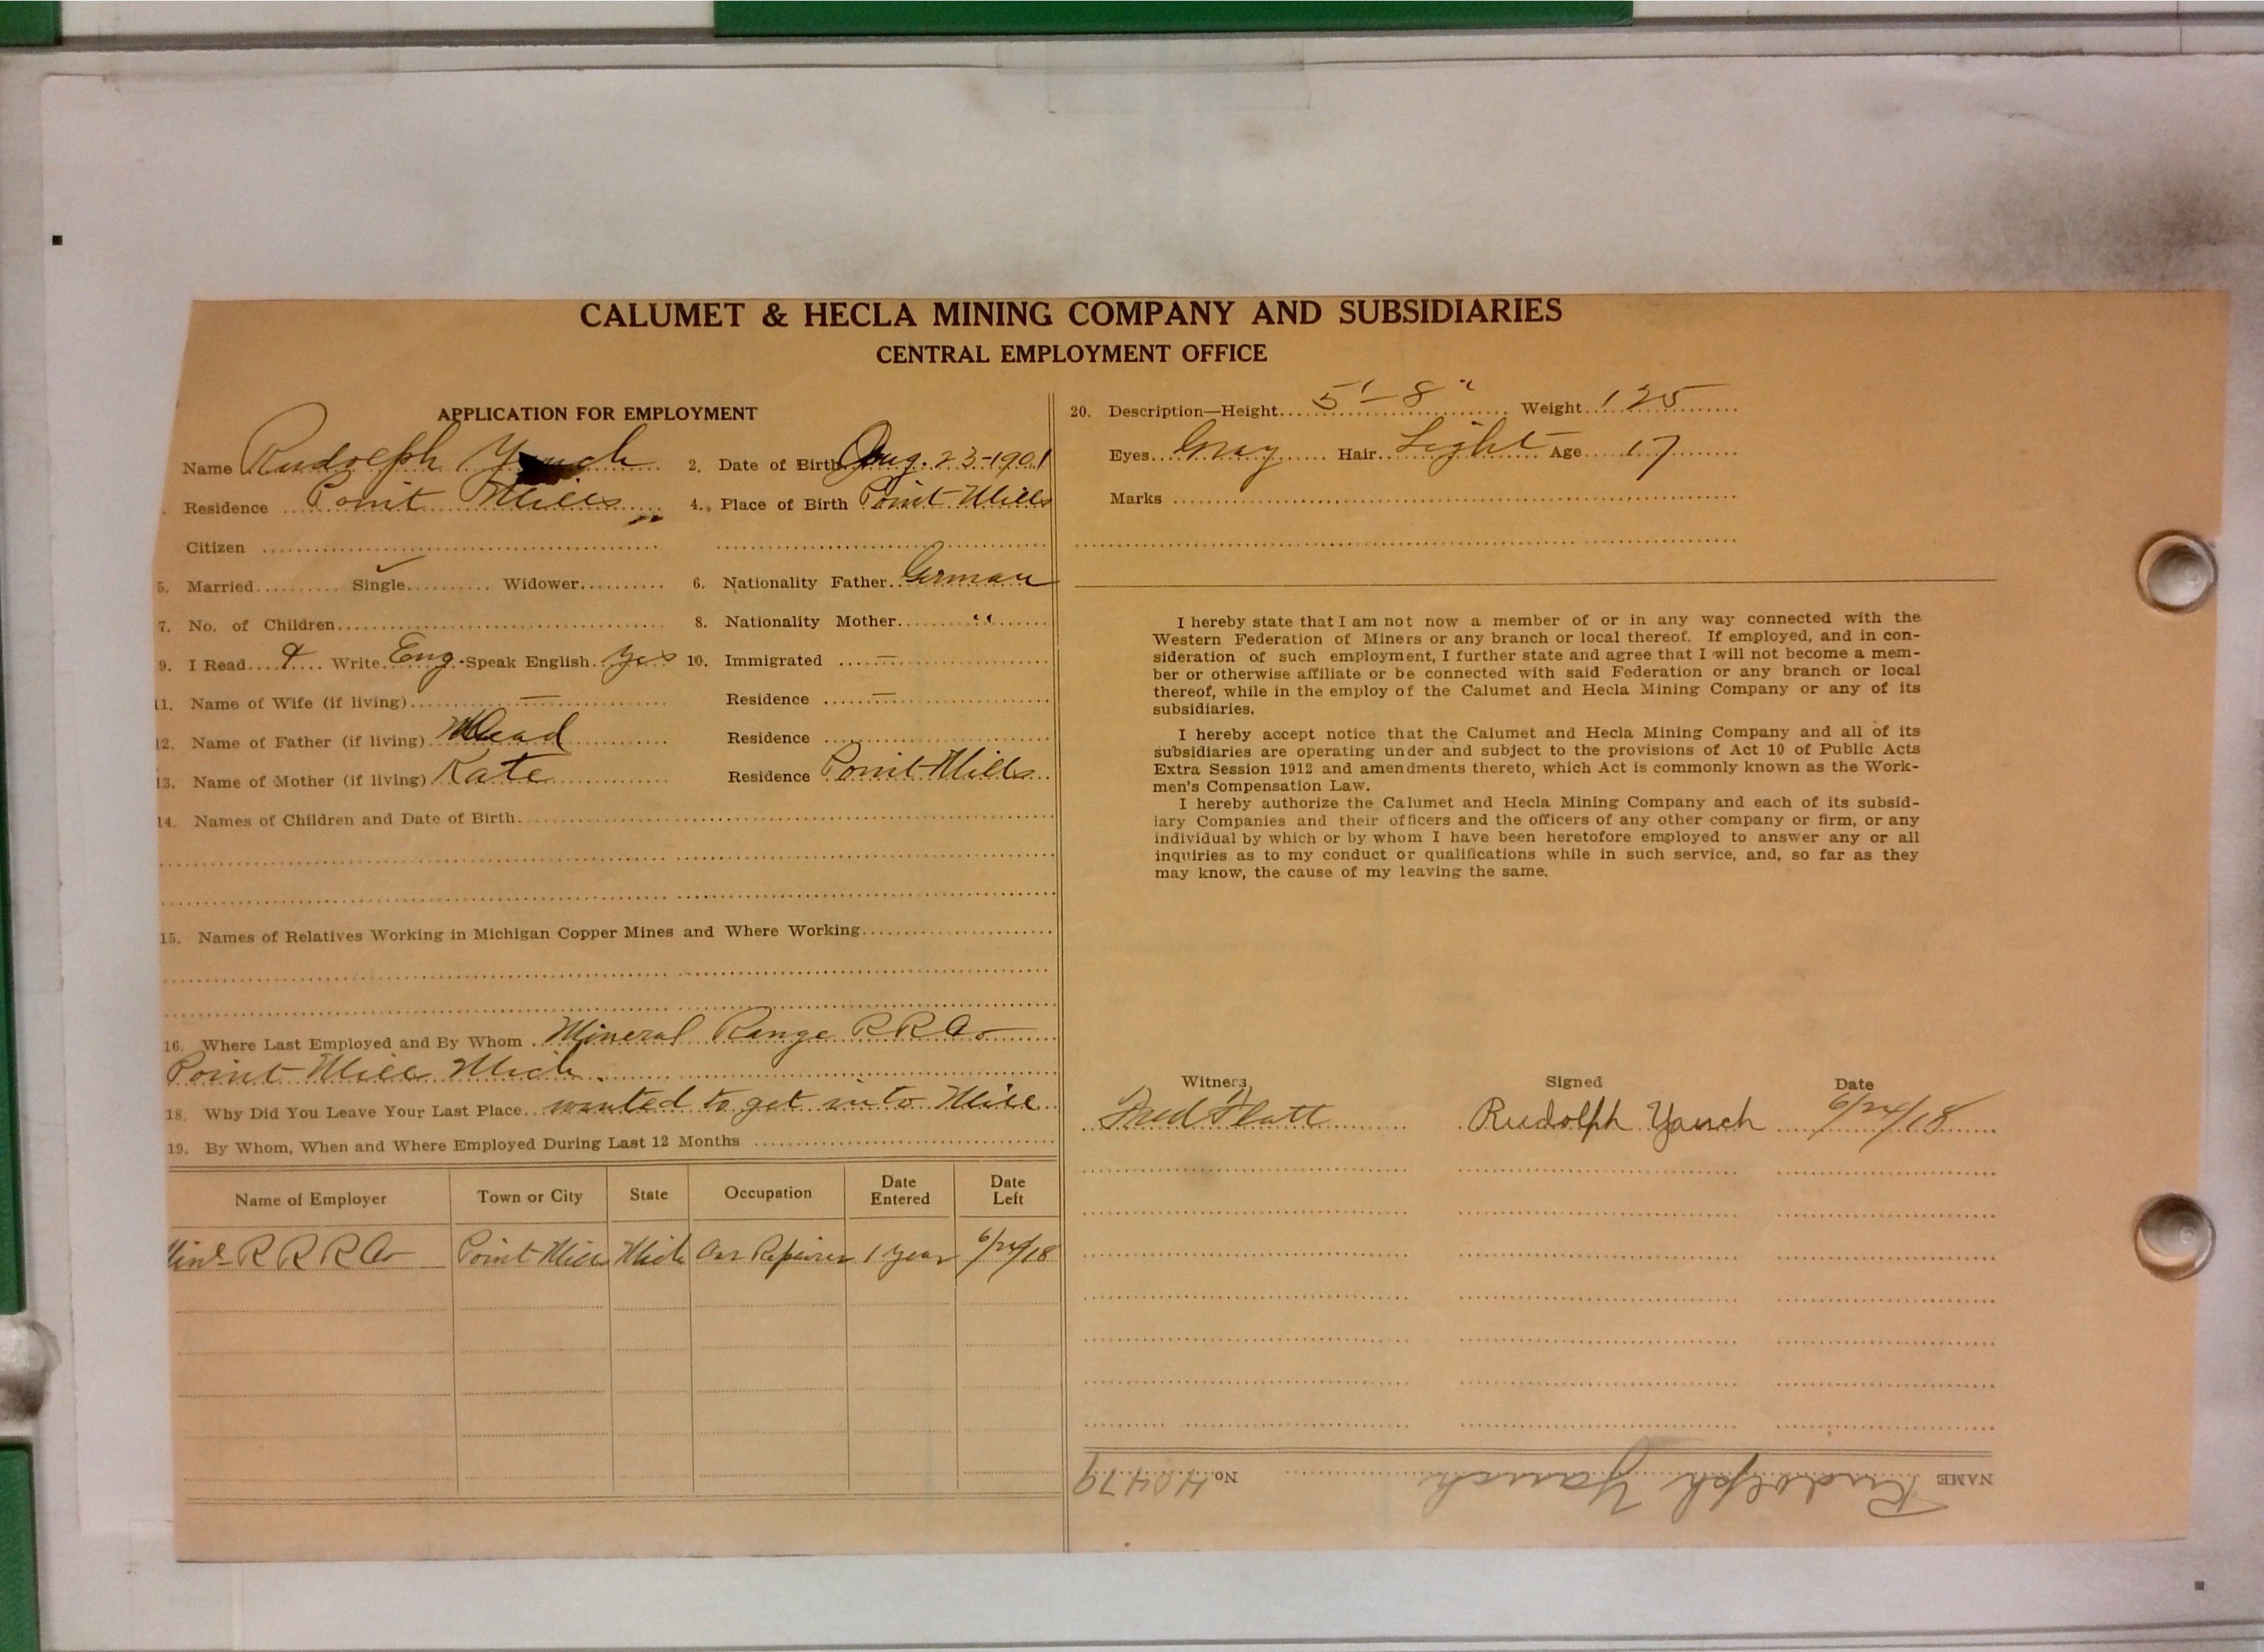 CALUMET & HECLA MINING COMPANY AND SUBSIDIARIES
CENTRAL EMPLOYMENT OFFICE
APPLICATION FOR EMPLOYMENT
Name Rudolph Yauch 2. Date of Birth Aug. 23-1901
Residence Point Mills 4. Place of Birth Point Mills
Citizen
5. Married Single ✓ Widower 6. Nationality Father German
7. No. of Children 8. Nationality Mother "
9. I Read & Write Eng. Speak English Yes 10. Immigrated —
11. Name of Wife (if living) — Residence —
12. Name of Father (if living) Dead Residence
13. Name of Mother (if living) Kate Residence Point Mills
14. Names of Children and Date of Birth
15. Names of Relatives Working in Michigan Copper Mines and Where Working
16. Where Last Employed and By Whom Mineral Range R R Co
Point Mill Mich.
18. Why Did You Leave Your Last Place wanted to get into Mill
19. By Whom, When and Where Employed During Last 12 Months
Name of Employer Town or City State Occupation Date Entered Date Left
R R R Co Point Mill Mich Car Repairer 1 year 6/24/18
20. Description—Height 5'-8" Weight 125
Eyes Gray Hair Light Age 17
Marks
I hereby state that I am not now a member of or in any way connected with the
Western Federation of Miners or any branch or local thereof. If employed, and in con-
sideration of such employment, I further state and agree that I will not become a mem-
ber or otherwise affiliate or be connected with said Federation or any branch or local
thereof, while in the employ of the Calumet and Hecla Mining Company or any of its
subsidiaries.
I hereby accept notice that the Calumet and Hecla Mining Company and all of its
subsidiaries are operating under and subject to the provisions of Act 10 of Public Acts
Extra Session 1912 and amendments thereto, which Act is commonly known as the Work-
men's Compensation Law.
I hereby authorize the Calumet and Hecla Mining Company and each of its subsid-
iary Companies and their officers and the officers of any other company or firm, or any
individual by which or by whom I have been heretofore employed to answer any or all
inquiries as to my conduct or qualifications while in such service, and, so far as they
may know, the cause of my leaving the same.
Witness Signed Date
Fred Platt Rudolph Yauch 6/24/18
NAME Rudolph Yauch No. 40479